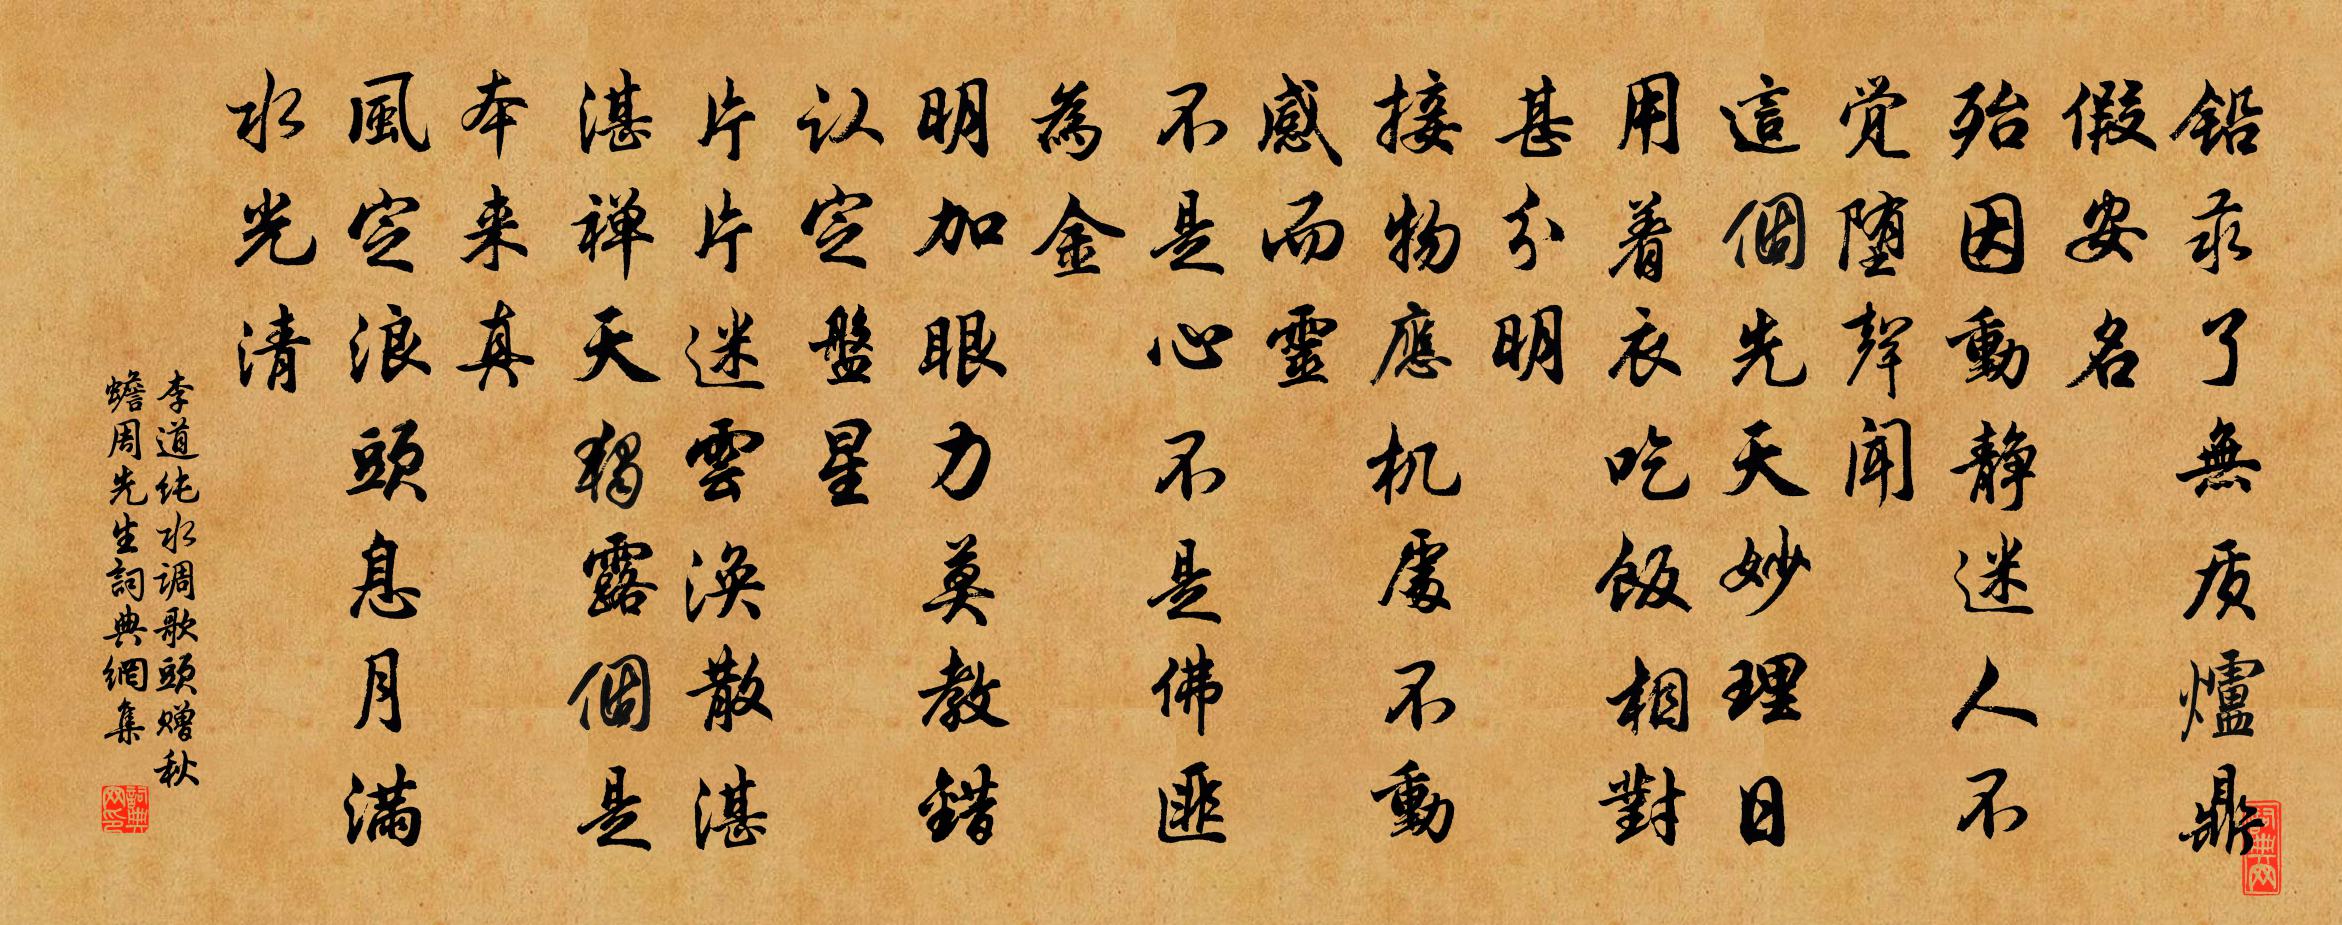 铅汞了無质爐鼎
假安名
殆因動静迷人不
觉堕聲聞
這個先天妙理日
用着衣吃飯相對
甚分明
接物應机處不動
感而靈
不是心不是佛匪
為金
明加眼力莫教錯
认定盤星
片片迷雲涣散湛
湛禅天独露個是
本来真
風定浪頭息月滿
水光清
李道纯水调歌頭赠秋
蟾周先生詞典網集
詞典网印
词典网